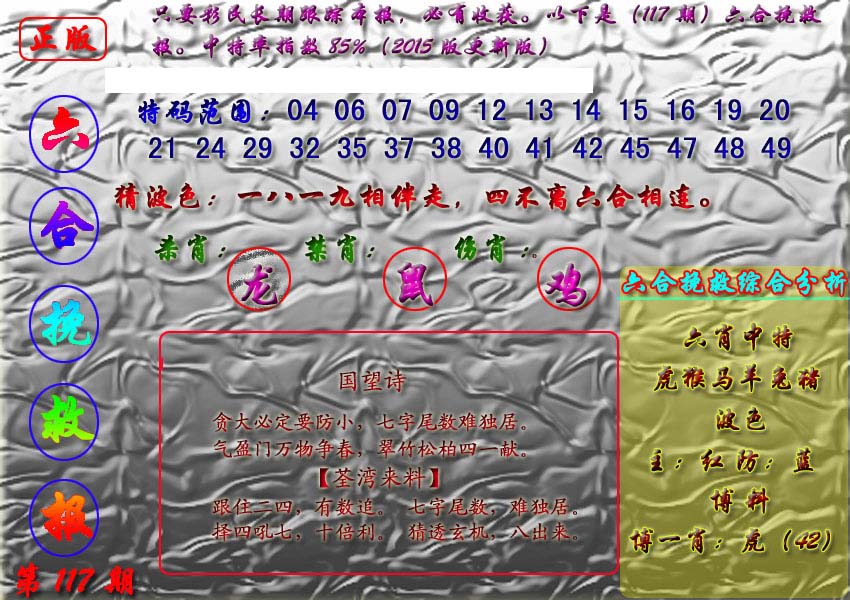 正版
只要彩民长期跟踪本报，必有收获。以下是（117期）六合挽救
报。中特率指数85%（2015版更新版）
六合挽救报
第117期
特码范围：04 06 07 09 12 13 14 15 16 19 20
21 24 29 32 35 37 38 40 41 42 45 47 48 49
猜波色：一八一九相伴走，四不离六合相连。
杀肖：龙 禁肖：鼠 伤肖：鸡
国望诗
贪大必定要防小，七字尾数难独居。
气盈门万物争春，翠竹松柏四一献。
【荃湾来料】
跟住二四，有数追。 七字尾数，难独居。
择四吼七，十倍利。 猜透玄机，八出来。
六合挽救综合分析
六肖中特
虎猴马羊兔猪
波色
主：红防：蓝
博料
博一肖：虎（42）